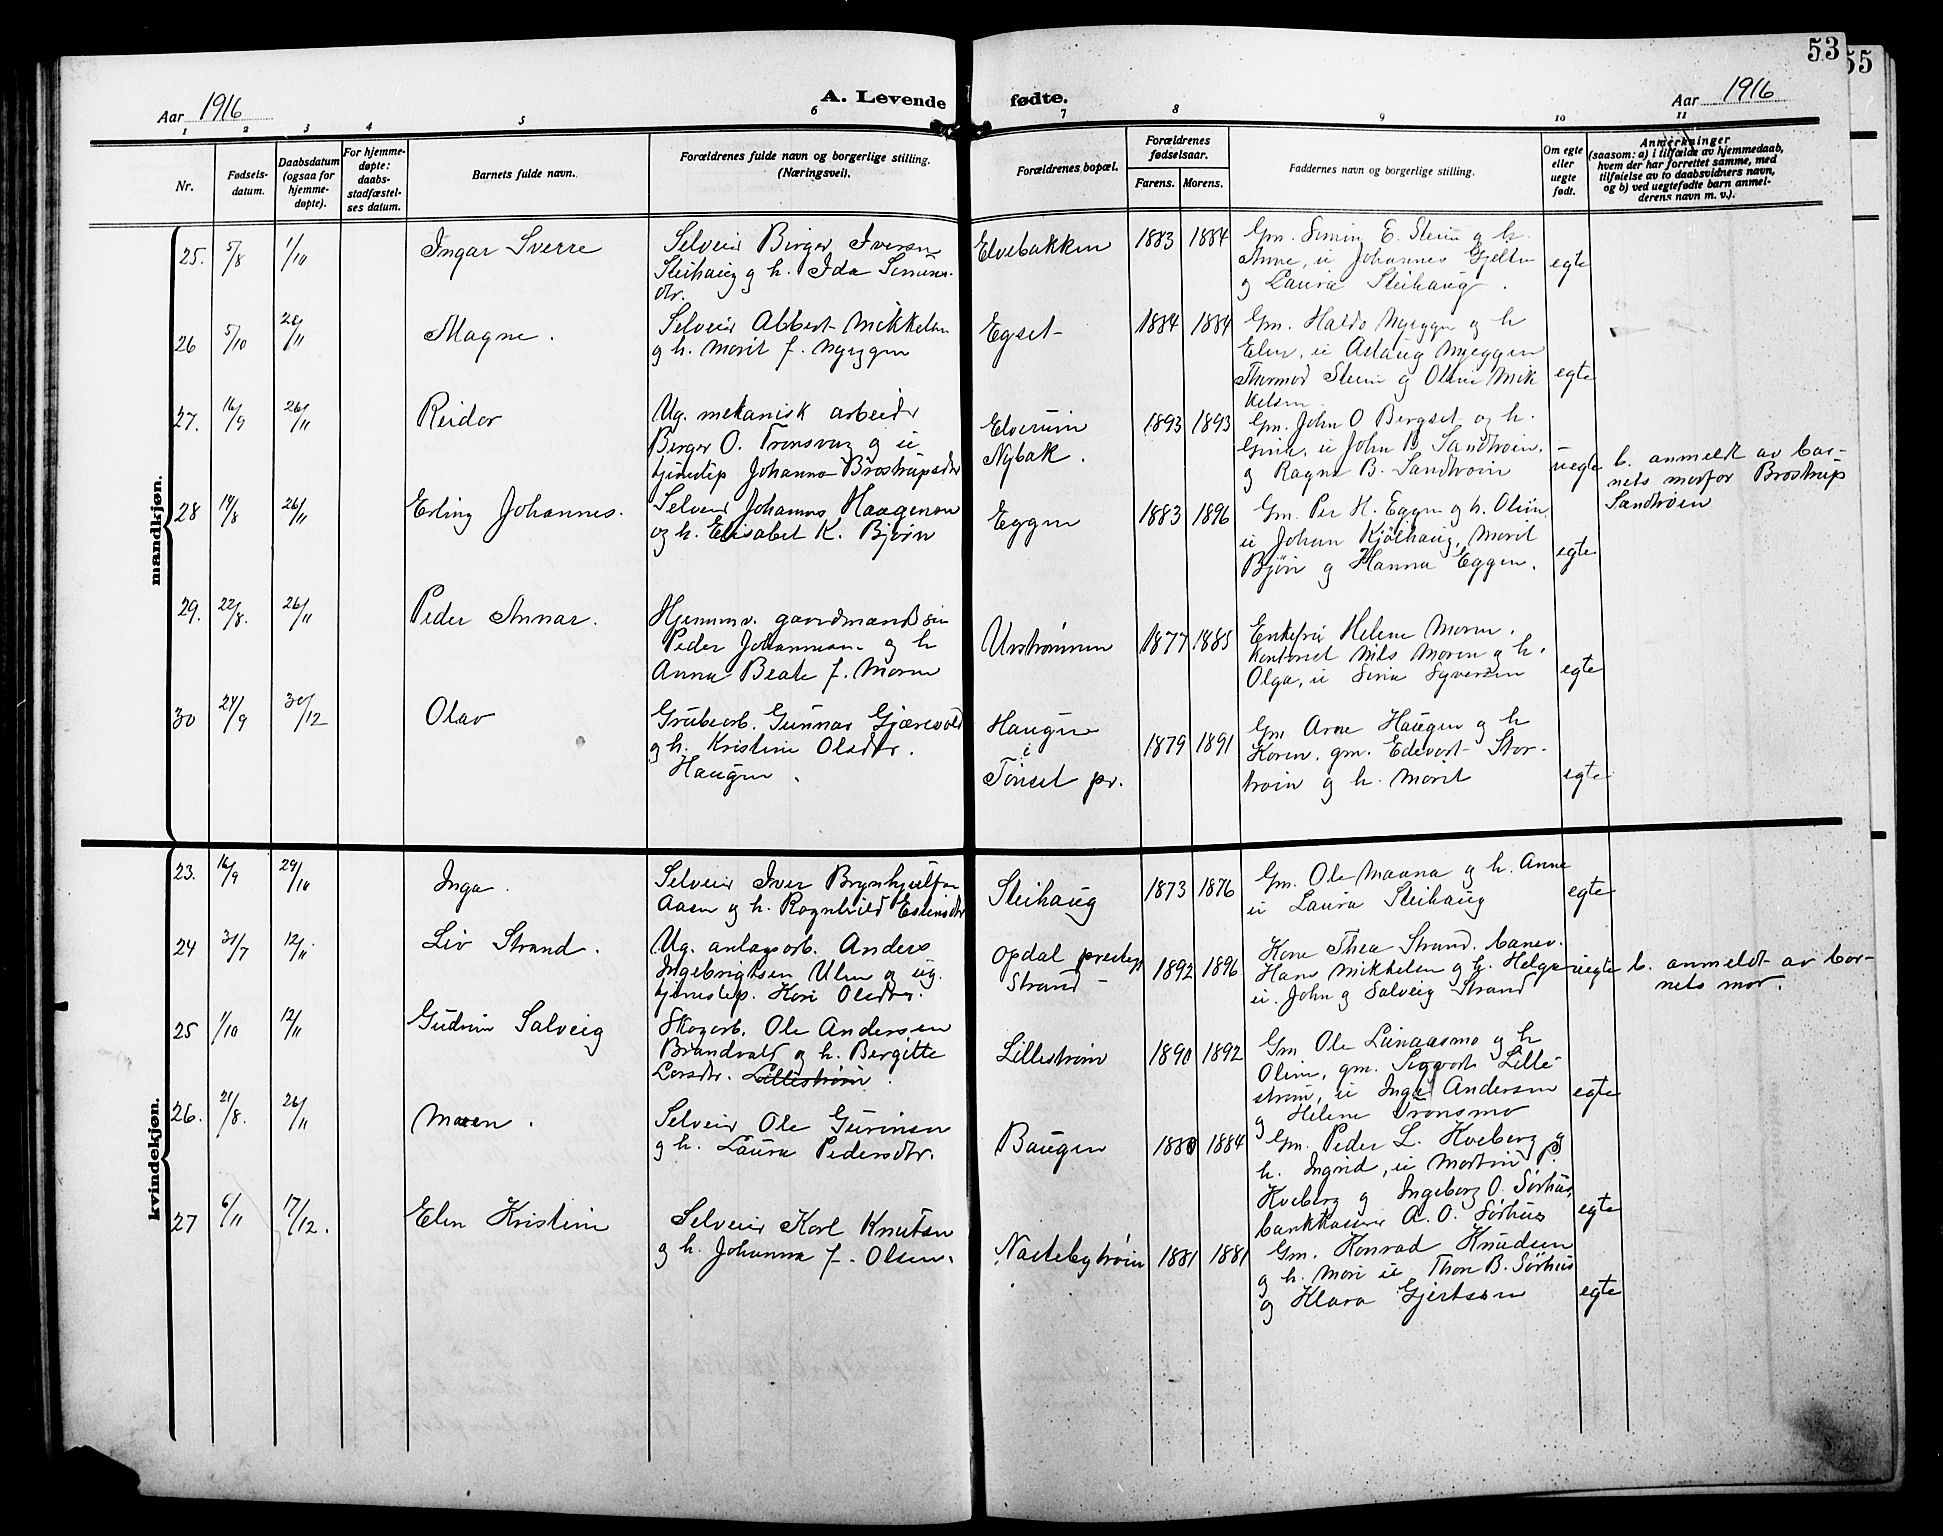 53
55
Aar 1916
A. Levende fødte.
Aar 1916
1 2 3 4 5 6 7 8 9 10 11
Nr.
Fødsels-
datum.
Daabsdatum
(ogsaa for
hjemme-
døpte).
For hjemme-
døpte:
daabs-
stadfæstel-
ses datum.
Barnets fulde navn.
Forældrenes fulde navn og borgerlige stilling.
(Næringsvei).
Forældrenes bopæl.
Forældrenes
fødselsaar.
Farens. Morens.
Faddernes navn og borgerlige stilling.
Om egte
eller
uegte
født.
Anmerkninger
(saasom: a) i tilfælde av hjemmedaab,
hvem der har forrettet samme, med
tilføielse av to daabsvidners navn,
og b) ved uegtefødte barn anmel-
derens navn m. v.).
mandkjøn.
25. 5/8 1/10 Ingar Sverre
Selveier Birger Iversen
Steihaug og h. Ida Simens-
dtr.
Elvebakken 1883 1884
Gm. Simen E. Steien og h.
Anne, u Johannes Gjelten
og Laura Steihaug.
egte
26 5/10 26/11 Magne.
Selveier Albert Mikkelsen
og h. Marit f. Nyeggen
Egset 1884 1884
Gm. Haldo Nyeggen og h
Elen, u Aslaug Nyeggen
Thormod Steien og Oline Mik
kelsen
egte
27. 16/9 26/11 Reidar
Ug. mekanisk arbeider
Birger O. Tronsvang og u
tjenestep Johanna Brostrupsdtr
Elverum
Nybak.
1893 1893
Gm. John O Bergset og h.
Gina, u John B Sandtrøen,
og Ragna B. Sandtrøen
uegte
b. anmeldt av bar-
nets morfar Brostrup
Sandtrøen
28 14/8 26/11 Erling Johannes.
Selveier Johannes Haagensen
og h. Elisabet K. Bjørn
Eggen 1883 1896
Gm. Per H. Eggen og h. Oline
u Johan Kjølhaug, Marit
Bjørn og Hanna Eggen.
egte
29. 22/8. 26/11 Peder Annar.
Hjemmv. gaardmandssøn
Peder Johannesen og h
Anna Beate f. Moren
Urstrømmen 1877 1885
Enkefru Helene Moren.
Kontorist Nils Moren og h.
Olga, u Sina Syversen
egte
30 24/9 30/12 Olav
Grubearb. Gunnar Gjærevold
og h. Kristine Olsdtr.
Haugen.
Haugen
i
Tønset pr.
1879 1891
Gm. Arne Haugen og h
Karen, gm. Edevart Stor-
trøen og h. Marit
egte
kvindekjøn.
23. 16/9 29/10 Inga.
Selveier Iver Brynhjulfsen
Aasen og h. Ragnhild Estensdtr
Steihaug 1873 1876
Gm. Ole Maana og h. Anne
u Laura Steihaug
egte
24 31/7 12/11. Liv Strand.
Ug. anlægsarb. Anders
Ingebrigtsen Ulen og ug.
tjenestep. Kari Olsdtr.
Opdal prestegj
Strand
1892 1896
Kone Thea Strand. banev.
Hans Mikkelsen og h. Helga
u. John og Salveig Strand
uegte
b. anmeldt av bar-
nets mor.
25 1/10 12/11 Gudrun Salveig
Skogarb. Ole Andersen
Brandvald og h. Bergitte
Larsdtr. Lillestrøm.
Lillestrøm 1890 1892
Gm Ole Lunaasmo og h
Oline, gm. Sigvart Lille-
strøm, u Inga Andersen
og Helene Tronsmo
egte
26. 21/8. 26/11 Maren.
Selveier Ole Gurinsen
og h. Laura Pedersdtr.
Baugen 1880 1884
Gm. Peder L. Kveberg og
h. Ingrid, u Martin P.
Kveberg og Ingeborg O. Sørhus,
bankkasserer A. O. Sørhus
egte
27 6/11 17/12. Elen Kristine
Selveier Karl Knutsen
og h. Johanna f. Olsen.
Nastebytrøen 1881 1881
Gm. Konrad Knudsen
og h. Mari u Thora B. Sørhus
og Klara Gjertsen
egte